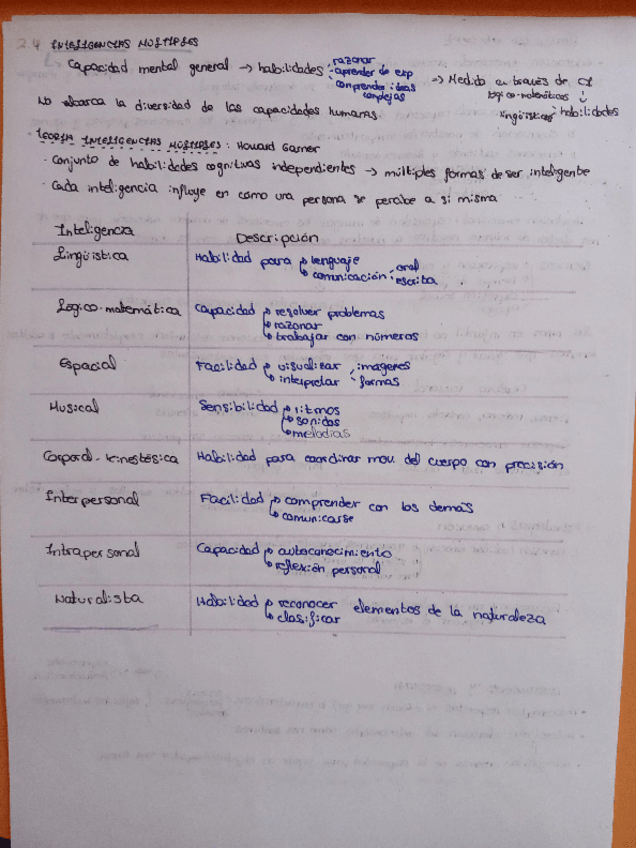 2.4 INTELIGENCIAS MÚLTIPLES
Capacidad mental general → habilidades razonar
aprender de exp
comprender ideas complejas
→ Medida a través de CI
lógico-matemáticas i
lingüísticas habilidades
No abarca la diversidad de las capacidades humanas
TEORÍA INTELIGENCIAS MÚLTIPLES: Howard Garner
· Conjunto de habilidades cognitivas independientes → múltiples formas de ser inteligente
· Cada inteligencia influye en cómo una persona se percibe a sí misma
Inteligencia Descripción
Lingüística Habilidad para lenguaje
comunicación oral
escrita
Lógico-matemática Capacidad resolver problemas
razonar
trabajar con números
Espacial Facilidad visualizar imágenes
interpretar formas
Musical Sensibilidad ritmos
sonidos
melodías
Corporal-kinestésica Habilidad para coordinar mov. del cuerpo con precisión
Interpersonal Facilidad comprender con los demás
comunicarse
Intrapersonal Capacidad autoconocimiento
reflexión personal
Naturalista Habilidad reconocer elementos de la naturaleza
clasificar